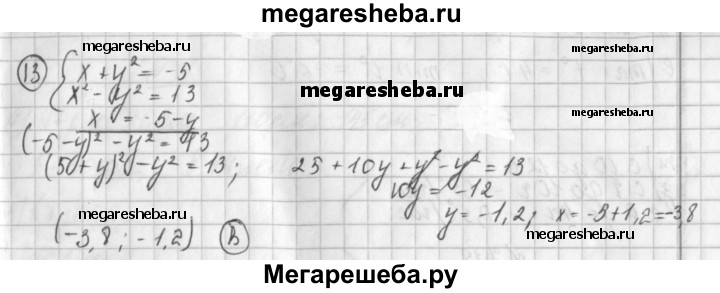 megaresheba.ru
megaresheba.ru
megaresheba.ru
megaresheba.ru
13 { x + y² = -5
x² - y² = 13
x = -5-y
(-5-y)² - y² = 13
(5+y)² - y² = 13; 25 + 10y + y² - y² = 13
10y = -12
y = -1,2; x = -5+1,2 = -3,8
(-3,8; -1,2) В
Мегарешеба.ру